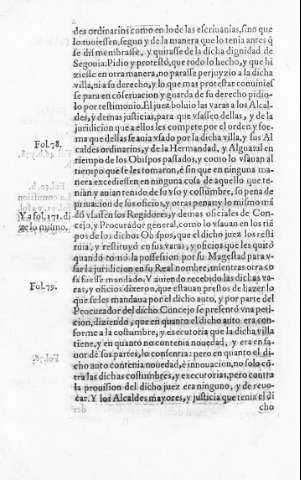 des ordinarios como en lo de las escriuanias, sino que
lo tuuiessen, segun y de la manera que lo tenia antes q̃
se dismembrasse, y quitasse de la dicha dignidad de
Segouia. Pidio y protestò, que todo lo hecho, y que hi
ziesse en otra manera, no parasse perjuyzio a la dicha
villa, ni a su derecho, y lo que mas protestar conuinies
se para en cõseruacion y guarda de su derecho pidio-
lo por testimonio. El juez boluio las varas a los Alcal-
des, y demas justicias, para que vsassen dellas, y de la
juridicion que a ellos les compete por el orden y for-
Fol. 78.
ma que dellas se auia vsado por la dicha villa, y sus Al
caldes ordinarios, y de la Hermandad, y Alguazil en
tiempo de los Obispos passados, y como lo vsauan al
tiempo que se les tomaron, ẽ sin que en ninguna ma
nera excediessen en ninguna cosa de aquello que te-
nian y auian tenido de vso y costũbre, so pena de
priuacion de sus oficios, y otras penas: y lo mismo mã
Y a fol. 171. di
ze lo mismo.
dò vsassen los Regidores, y demas oficiales de Con-
cejo, y Procurador general, como lo vsauan en los tiẽ
pos de los dichos Obispos, que el dicho juez los resti
tuia, y restituyò en sus varas, y oficios que les quitò
quando tomò la possession por su Magestad para v-
sar la juridicion en su Real nombre, mientras otra co
sa fuesse mandado. Y auiendo recebido las dichas va-
Fol. 79.
ras, y oficios dixeron, que estauan prestos de hazer lo
que se les mandaua por el dicho auto, y por parte del
Procurador del dicho Concejo se presentò vna peti-
cion, diziendo, que en quanto el dicho auto era con-
forme a la costumbre, y executoria que la dicha villa
tiene, y en quanto no contenia nouedad, y era en fa-
uor de sus partes, lo consentia: pero en quanto el di-
cho auto contenia nouedad, è innouacion, no solo cõ
tra las dichas costumbres, y executorias, pero contra
la prouision del dicho juez era ninguno, y de reuo-
car. Y los Alcaldes mayores, y justicia que tenia el di
cho